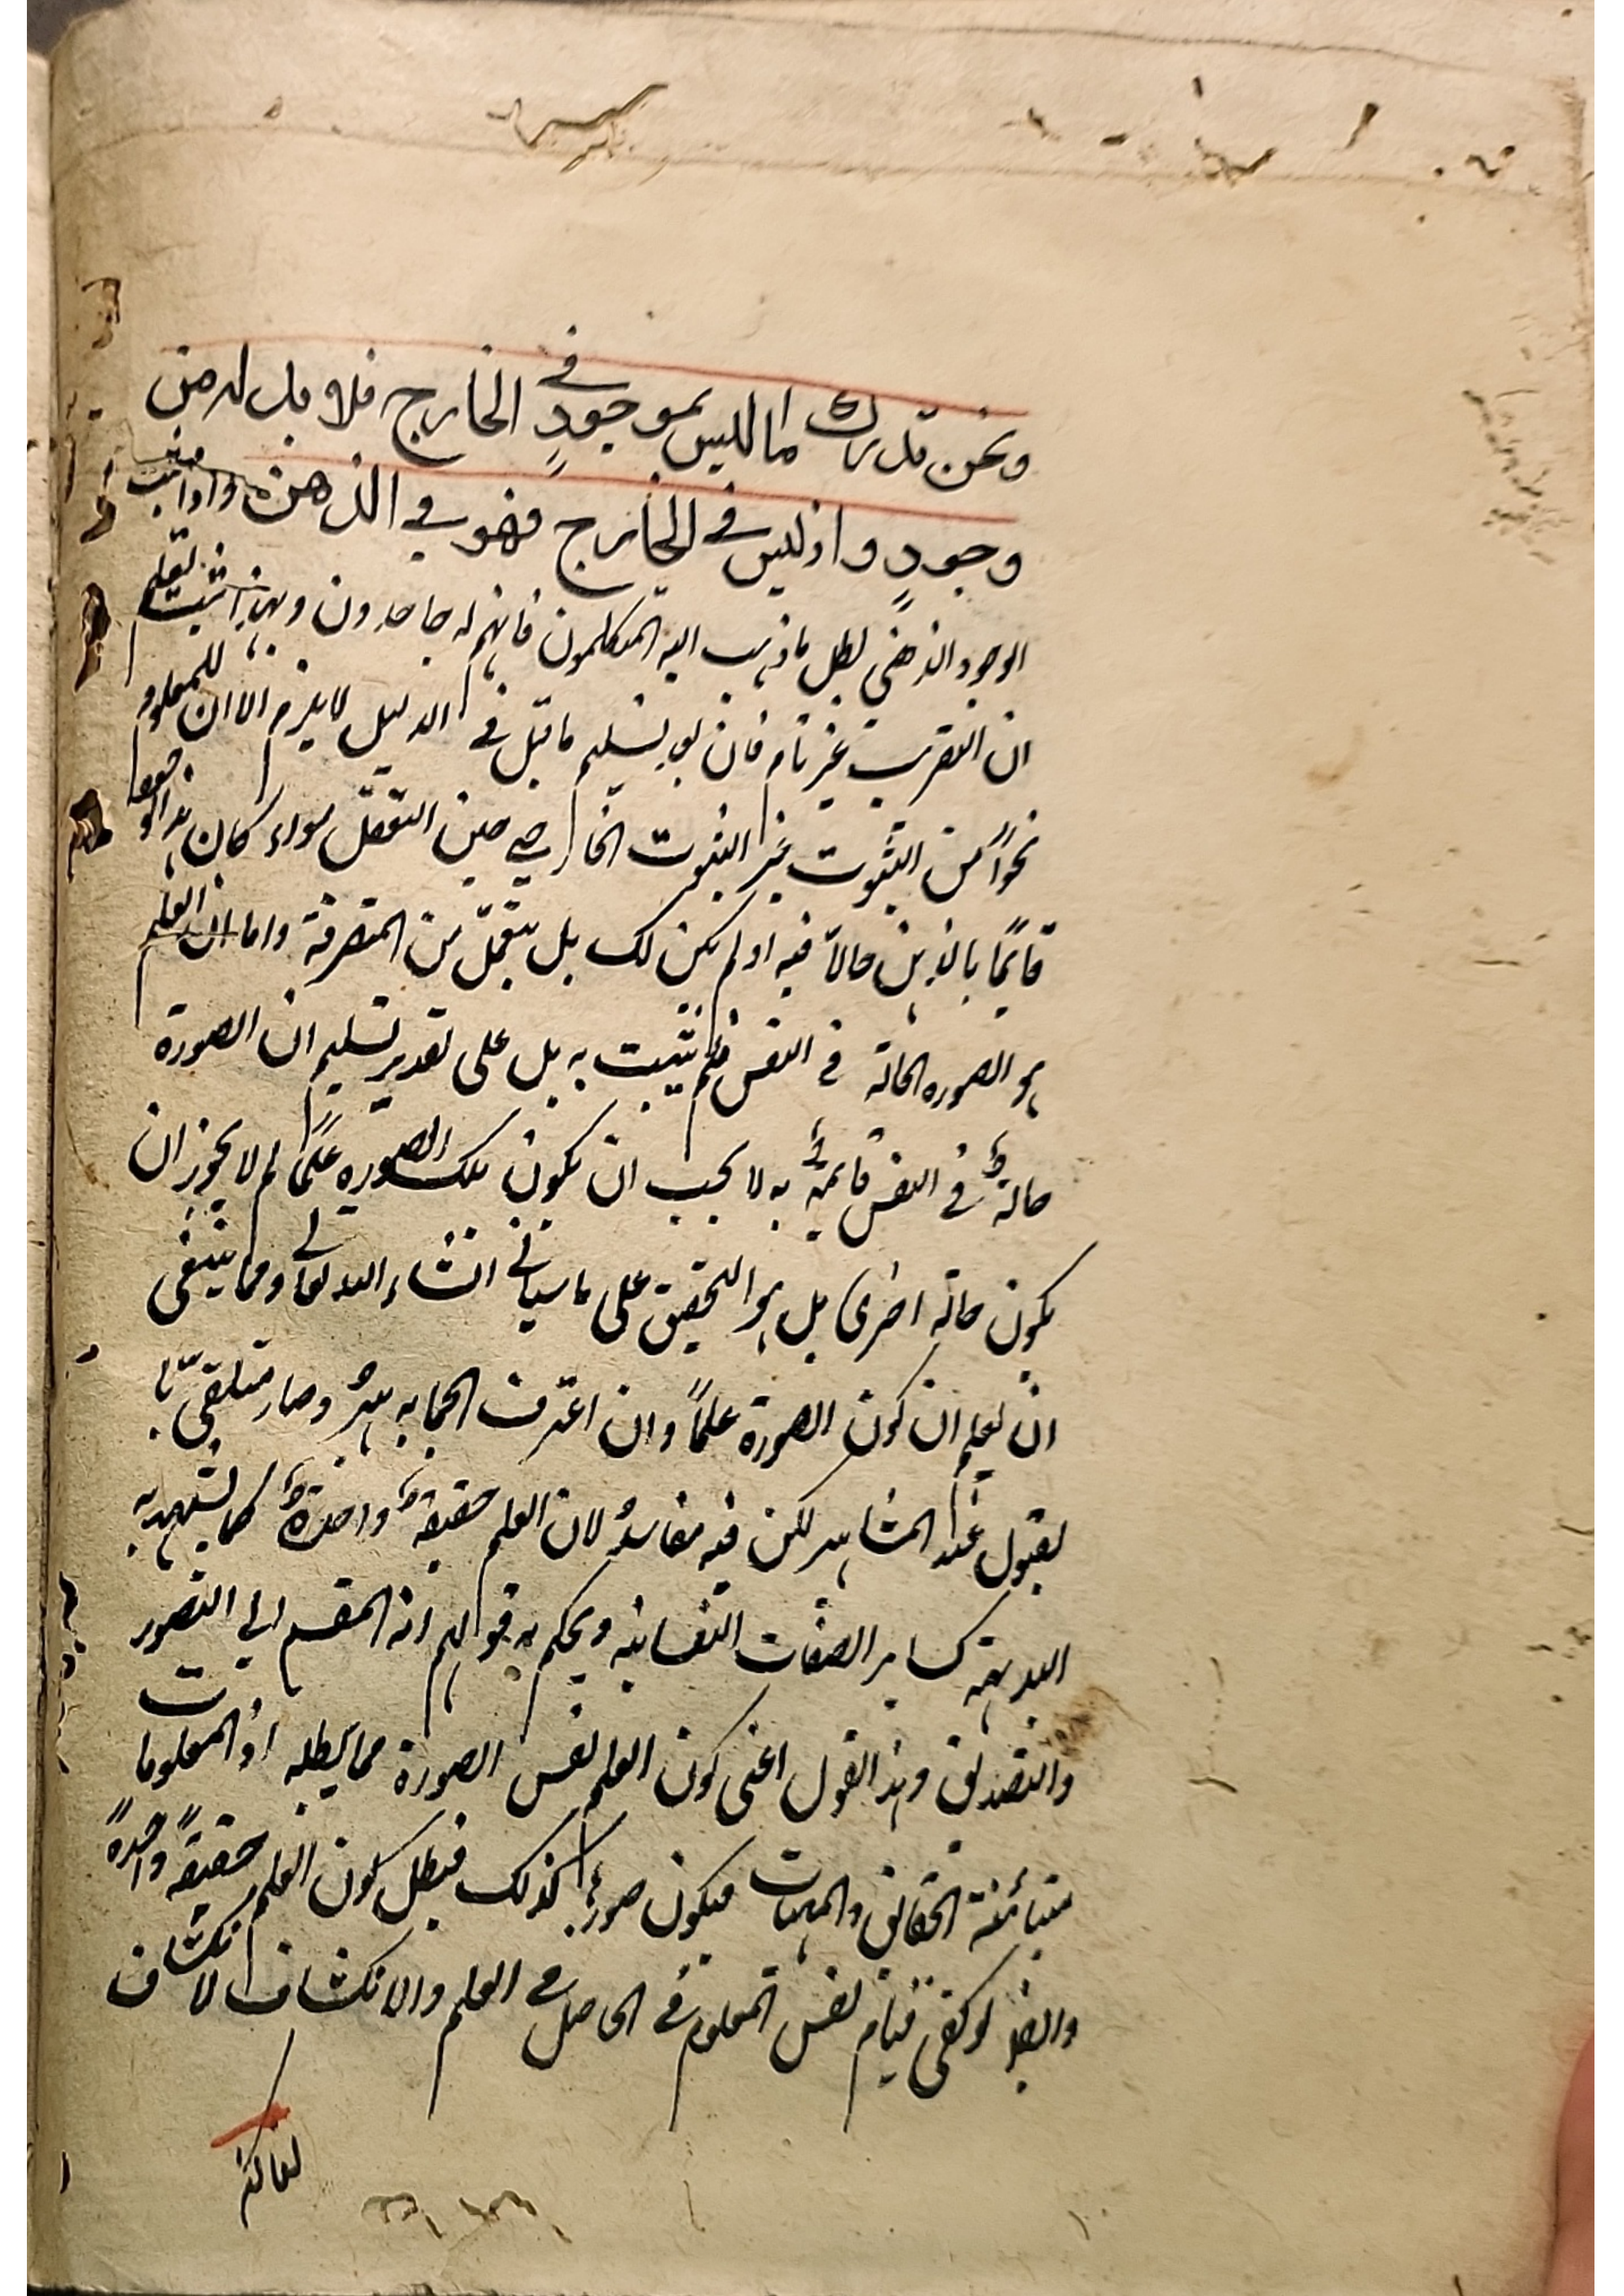 ونحن ندرك ما ليس بموجودٍ في الخارج فلا بد له من
وجودٍ واذ ليس في الخارج فهو في الذهن واذا ثبت
الوجود الذهني بطل ما ذهب اليه المتكلمون فانهم له جاحدون وبهذا ثبت لعلم
ان التقريب غير تام فان بعد تسليم ما قيل في الدليل لا يلزم الا ان للمعلوم
نحواً من الثبوت غير الثبوت الخارجي حين التعقل سواء كان هذا الوجود
قايمًا بالذهن حالاً فيه او لم يكن كك بل من المتصرفة واما ان العلم
هو الصورة الحالة في النفس فلم يثبت به بل على تقدير تسليم ان الصورة
حالةٌ في النفس قايمةٌ به لا يجب ان يكون تلك الصورة علمًا لم لا يجوز ان
يكون حالة اخرى بل هو التحقيق على ما سياتي انشاء الله تعالى ومما ينبغي
ان يعلم ان كون الصورة علماً وان اعترف الجماهير وصار متلقىً با
لقبول عند المشاهير لكن فيه مفاسد لان العلم حقيقةٌ واحدةٌ كما يشهد به
البديهة كساير الصفات النفسانية ويحكم به قولهم انه المقسم الى التصور
والتصديق وهذا القول اعنى كون العلم نفس الصورة مما يبطله اذ المعلومات
متبائنة الحقائق والمهيات فيكون صورها كذلك فبطل كون العلم حقيقةً واحدةً
وايضا لو كفى قيام نفس المعلوم في الحاصل في العلم والانكشاف لانكشاف